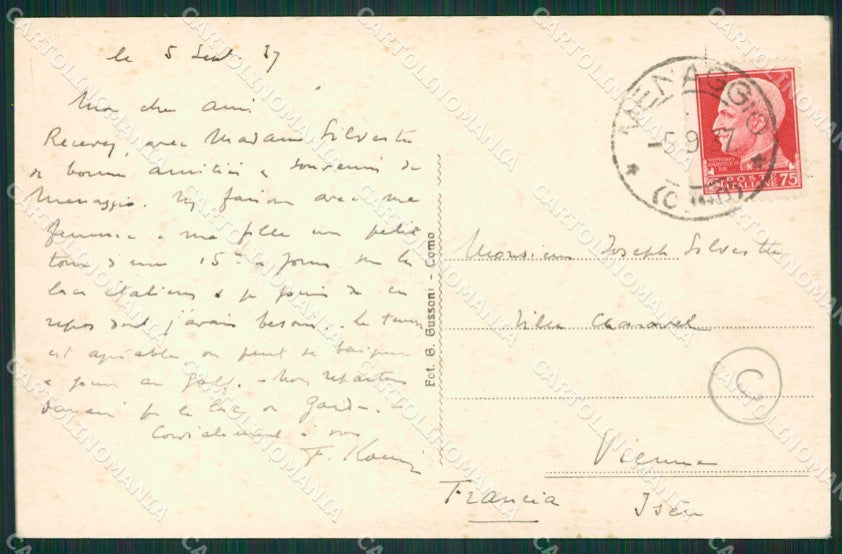 le 5 Sept 37
Mon cher ami
Recevez, avec Madame Silvestre
n bonne amitiés & souvenirs de
Menaggio. Ns faisons avec ma
femme & ma fille un petit
tour d'une 15ne de jours sur les
lacs italiens & je jouis de ce
repos dont j'avais besoin. Le temps
est agréable on peut se baigner
& jouer au golf. Nous repartons
demain pr le lac de Garde.
Cordialement à vous
F.
Fot. G. Gussoni - Como
MENAGGIO
-5.9.37.
(COMO)
VITTORIO
EMANUELE III
RE
POSTE
ITALIANE
75
Monsieur Joseph Silvestre
Villa
Vienne
Isère
Francia
C
CARTOLINOMANIA